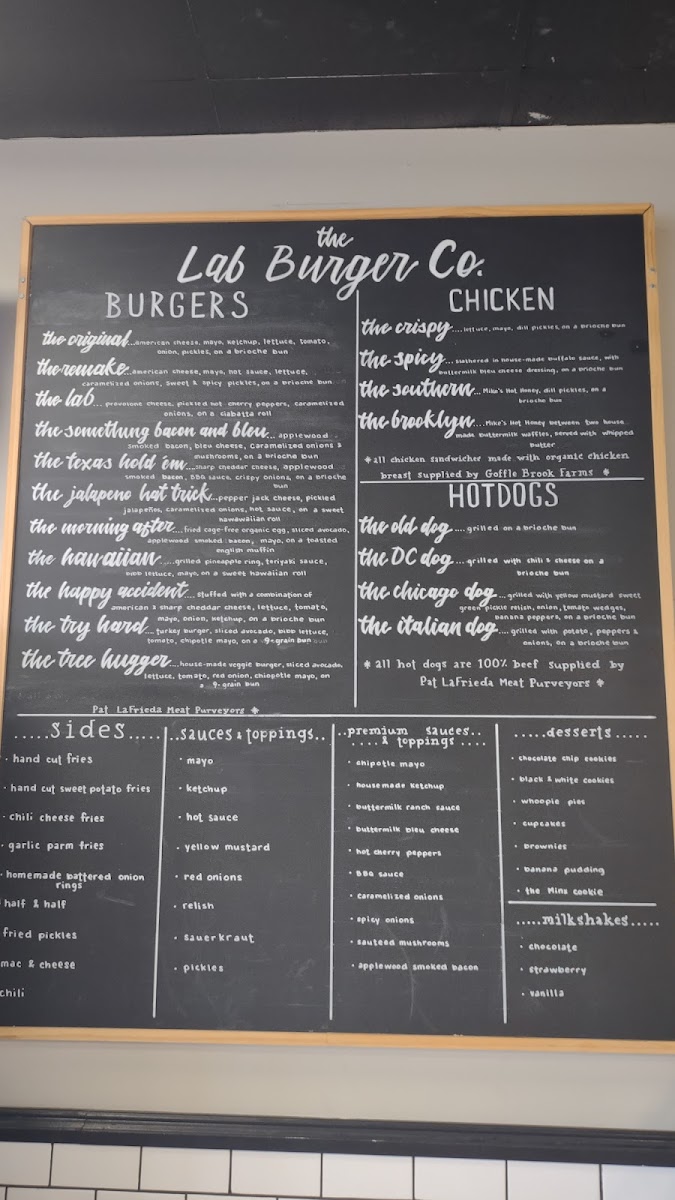 the
Lab Burger Co.
BURGERS
the original...american cheese, mayo, ketchup, lettuce, tomato,
onion, pickles, on a brioche bun
the remake...american cheese, mayo, hot sauce, lettuce,
caramelized onions, sweet & spicy pickles, on a brioche bun
the lab...provolone cheese, pickled hot cherry peppers, caramelized
onions, on a ciabatta roll
the something bacon and bleu...applewood
smoked bacon, bleu cheese, caramelized onions &
mushrooms, on a brioche bun
the texas hold 'em...sharp cheddar cheese, applewood
smoked bacon, BBQ sauce, crispy onions, on a brioche
bun
the jalapeno hat trick...pepper jack cheese, pickled
jalapeños, caramelized onions, hot sauce, on a sweet
hawaiian roll
the morning after...fried cage-free organic egg, sliced avocado,
applewood smoked bacon, mayo, on a toasted
english muffin
the hawaiian.....grilled pineapple ring, teriyaki sauce,
bibb lettuce, mayo, on a sweet hawaiian roll
the happy accident...stuffed with a combination of
american & sharp cheddar cheese, lettuce, tomato,
mayo, onion, ketchup, on a brioche bun
the try hard...turkey burger, sliced avocado, bibb lettuce,
tomato, chipotle mayo, on a 9-grain bun
the tree hugger...house-made veggie burger, sliced avocado,
lettuce, tomato, red onion, chipotle mayo, on
a 9-grain bun
Pat LaFrieda Meat Purveyors *
CHICKEN
the crispy....lettuce, mayo, dill pickles, on a brioche bun
the spicy....slathered in house-made buffalo sauce, with
buttermilk bleu cheese dressing, on a brioche bun
the southern...Mike's Hot Honey, dill pickles, on a
brioche bun
the brooklyn...Mike's Hot Honey between two house
made buttermilk waffles, served with whipped
butter
*all chicken sandwiches made with organic chicken
breast supplied by Goffle Brook Farms *
HOTDOGS
the old dog....grilled on a brioche bun
the DC dog...grilled with chili & cheese on a
brioche bun
the chicago dog...grilled with yellow mustard sweet
green pickle relish, onion, tomato wedges,
banana peppers, on a brioche bun
the italian dog...grilled with potato, peppers &
onions, on a brioche bun
* all hot dogs are 100% beef supplied by
Pat LaFrieda Meat Purveyors *
.....sides.....
· hand cut fries
· hand cut sweet potato fries
· chili cheese fries
· garlic parm fries
· homemade battered onion
rings
half & half
fried pickles
mac & cheese
chili
..sauces & toppings..
· mayo
· ketchup
· hot sauce
· yellow mustard
· red onions
· relish
· sauerkraut
· pickles
..premium sauces..
....& toppings....
· chipotle mayo
· housemade ketchup
· buttermilk ranch sauce
· buttermilk bleu cheese
· hot cherry peppers
· BBQ sauce
· caramelized onions
· spicy onions
· sauteed mushrooms
· applewood smoked bacon
.....desserts.....
· chocolate chip cookies
· black & white cookies
· whoopie pies
· cupcakes
· brownies
· banana pudding
· the Minx cookie
.....milkshakes.....
· chocolate
· strawberry
· vanilla